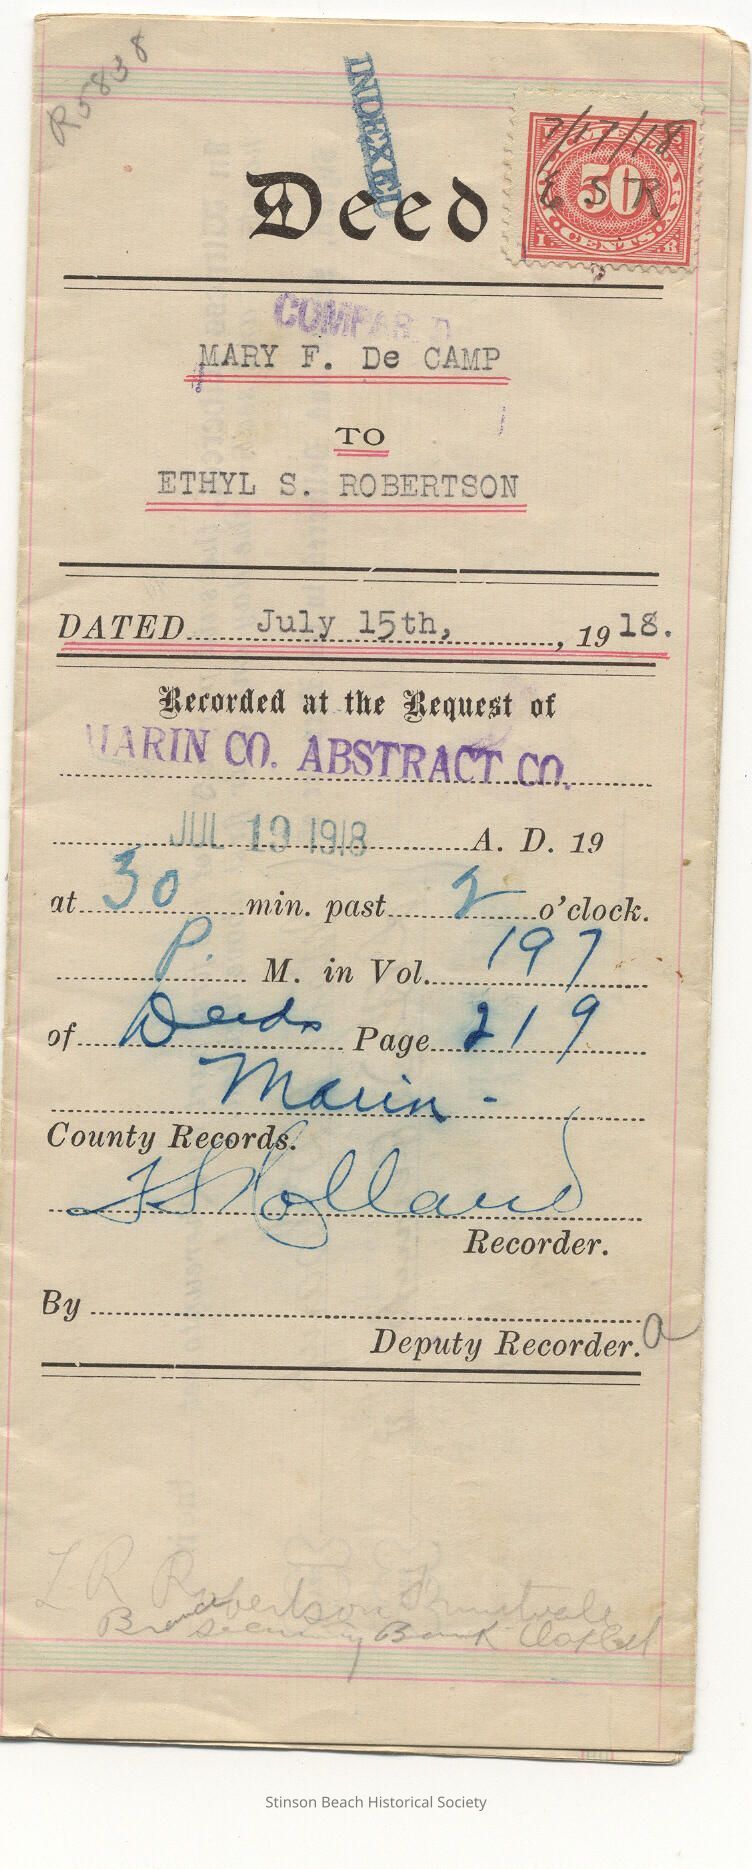 R5838
INDEXED
Deed
7/17/18
E S R
50
CENTS
COMPARED
MARY F. De CAMP
TO
ETHYL S. ROBERTSON
DATED July 15th, 1918.
Recorded at the Request of
MARIN CO. ABSTRACT CO.
JUL 19 1918 A. D. 19
at 30 min. past 2 o'clock.
P. M. in Vol. 197
of Deeds Page 219
Marin -
County Records.
F S Holland
Recorder.
By
Deputy Recorder. a
L R Robertson Fruitvale
Branch Security Bank
Stinson Beach Historical Society